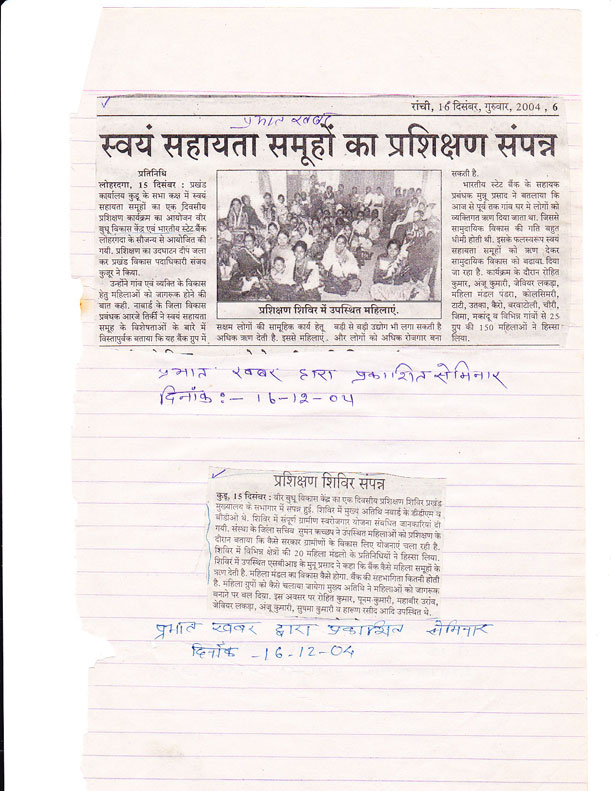 रांची, 16 दिसंबर, गुरुवार, 2004 , 6
प्रभात खबर
स्वयं सहायता समूहों का प्रशिक्षण संपन्न
प्रतिनिधि
लोहरदगा, 15 दिसंबर : प्रखंड
कार्यालय कुडू के सभा कक्ष में स्वयं
सहायता समूहों का एक दिवसीय
प्रशिक्षण कार्यक्रम का आयोजन वीर
बुधू विकास केंद्र एवं भारतीय स्टेट बैंक
लोहरदगा के सौजन्य से आयोजित की
गयी. प्रशिक्षण का उदघाटन दीप जला
कर प्रखंड विकास पदाधिकारी संजय
कुजूर ने किया.
उन्होंने गांव एवं व्यक्ति के विकास
हेतु महिलाओं को जागरूक होने की
बात कही. नाबार्ड के जिला विकास
प्रबंधक आरजे तिर्की ने स्वयं सहायता
समूह के विशेषताओं के बारे में
विस्तापूर्वक बताया कि यह बैंक ग्रुप में
प्रशिक्षण शिविर में उपस्थित महिलाएं.
सक्षम लोगों की सामूहिक कार्य हेतू
अधिक ऋण देती है. इससे महिलाएं
बड़ी से बड़ी उद्योग भी लगा सकती है
और लोगों को अधिक रोजगार बना
सकती है.
भारतीय स्टेट बैंक के सहायक
प्रबंधक मुन्नू प्रसाद ने बतलाया कि
आज से पूर्व तक गांव घर मे लोगों को
व्यक्तिगत ऋण दिया जाता था. जिससे
सामुदायिक विकास की गति बहुत
धीमी होती थी. इसके फलस्वरूप स्वयं
सहायता समूहों को ऋण देकर
सामुदायिक विकास को बढ़ावा दिया
जा रहा है. कार्यक्रम के दौरान रोहित
कुमार, अंजू कुमारी, जेवियर लकड़ा,
महिला मंडल पंडरा, कोलसिमरी,
टाटी, उतका, कैरो, बरवाटोली, चीरी,
जिमा, मकांदू व विभिन्न गांवों से 25
ग्रुप की 150 महिलाओं ने हिस्सा
लिया.
प्रभात खबर द्वारा प्रकाशित सेमिनार
दिनांक :- 16-12-04
प्रशिक्षण शिविर संपन्न
कुडू, 15 दिसंबर : वीर बुधू विकास केंद्र का एक दिवसीय प्रशिक्षण शिविर प्रखंड
मुख्यालय के सभागार में संपन्न हुई. शिविर में मुख्य अतिथि नवार्ड के डीडीएम व
बीडीओ थे. शिविर में संपूर्ण ग्रामीण स्वरोजगार योजना संबधित जानकारियां दी
गयी. संस्था के जिला सचिव सुमन कच्छप ने उपस्थित महिलाओं को प्रशिक्षण के
दौरान बताया कि कैसे सरकार ग्रामीणों के विकास लिए योजनाएं चला रही है.
शिविर में विभिन्न क्षेत्रों की 20 महिला मंडलों के प्रतिनिधियों ने हिस्सा लिया.
शिविर में उपस्थित एसबीआइ के मुनू प्रसाद ने कहा कि बैंक कैसे महिला समूहों के
ऋण देती है. महिला मंडल का विकास कैसे होगा. बैंक की सहभागिता कितनी होती
है. महिला ग्रुपों को कैसे चलाया जायेगा मुख्य अतिथि ने महिलाओं को जागरूक
बनाने पर बल दिया. इस अवसर पर रोहित कुमार, पूनम कुमारी, महावीर उरांव,
जेवियर लकड़ा, अंजू कुमारी, सुषमा कुमारी व हारूण रसीद आदि उपस्थित थे.
प्रभात खबर द्वारा प्रकाशित सेमिनार
दिनाँक -16-12-04